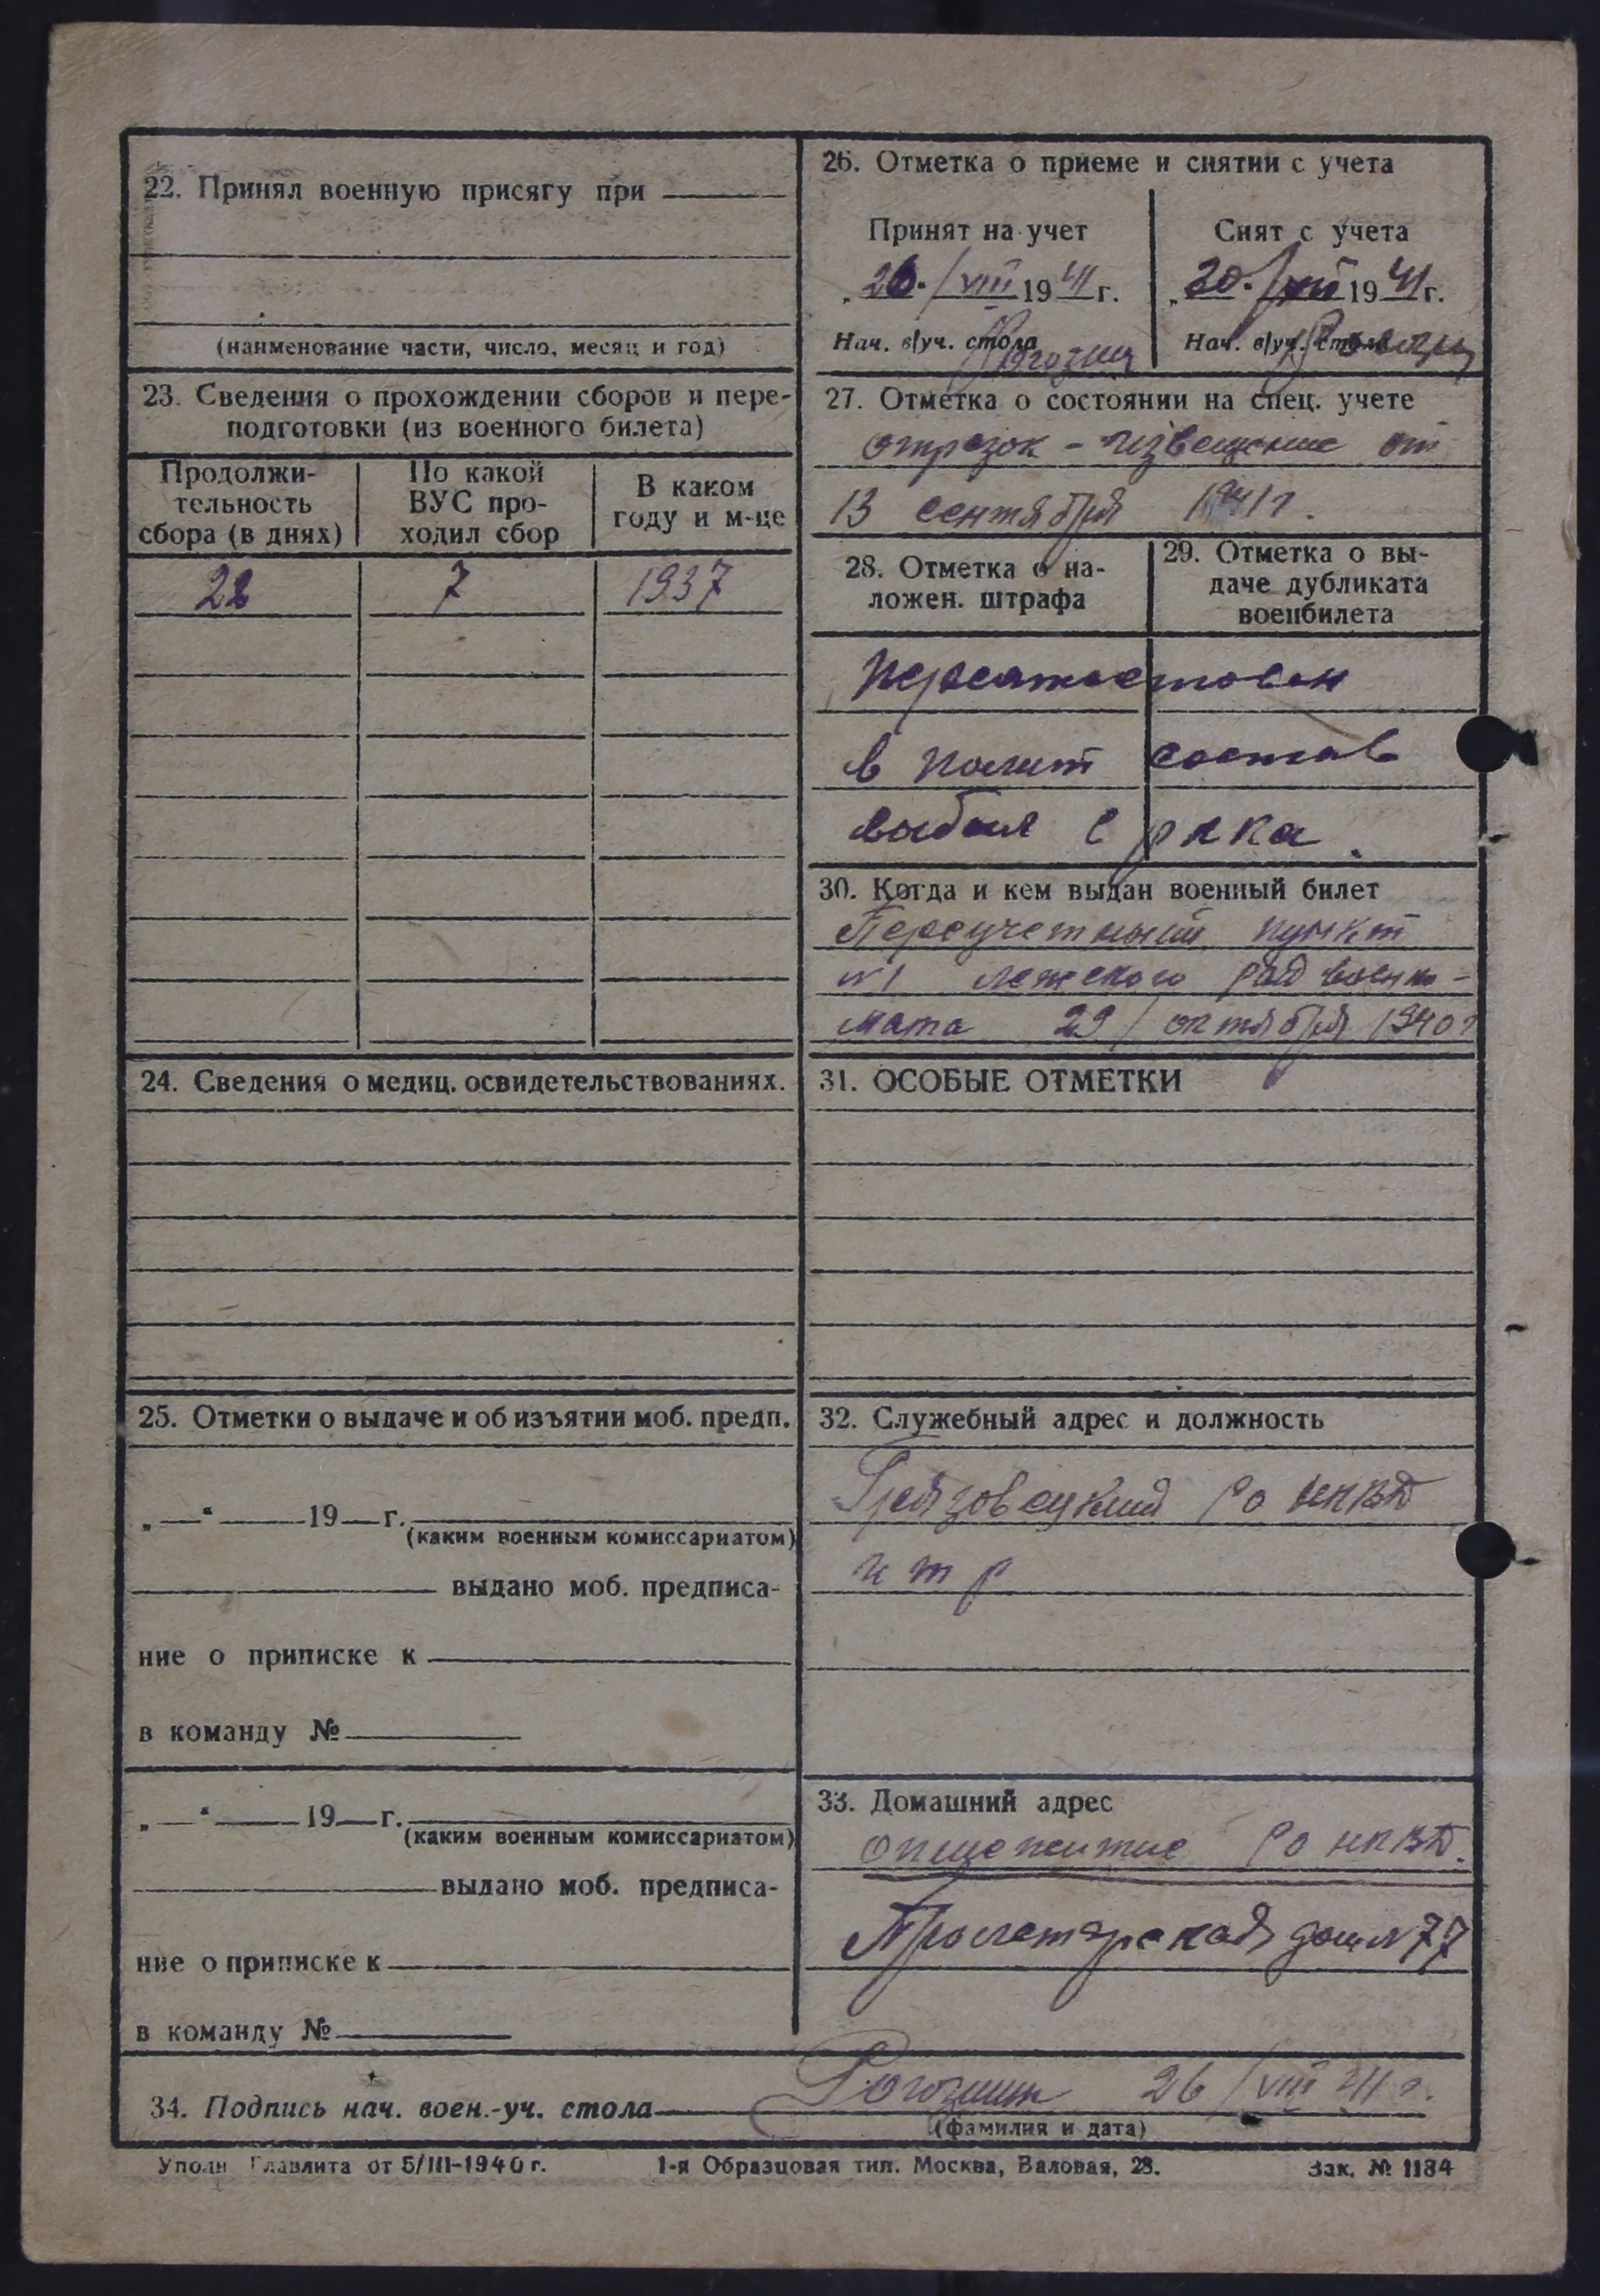 22. Принял военную присягу при
(наименование части, число, месяц и год)
23. Сведения о прохождении сборов и пере-
подготовки (из военного билета)
Продолжи-
тельность
сбора (в днях)
По какой
ВУС про-
ходил сбор
В каком
году и м-це
22 7 1937
24. Сведения о медиц. освидетельствованиях.
25. Отметки о выдаче и об изъятии моб. предп.
„ — “ — 19 — г.
(каким военным комиссариатом)
выдано моб. предписа-
ние о приписке к
в команду №
„ — “ — 19 — г.
(каким военным комиссариатом)
выдано моб. предписа-
ние о приписке к
в команду №
26. Отметка о приеме и снятии с учета
Принят на учет
„26. / VIII 1941 г.
Нач. в/уч. стола
Рогозин
Снят с учета
„30. / 1941 г.
Нач. в/уч. стола
27. Отметка о состоянии на спец. учете
отрезок - извещение от
13 сентября 1941 г.
28. Отметка о на-
ложен. штрафа
29. Отметка о вы-
даче дубликата
военбилета
Переаттестован
в полит состав
выбыл с
30. Когда и кем выдан военный билет
Переучетный пункт
№1 Лежского рай военко-
мата 29/ октября 1940 г
31. ОСОБЫЕ ОТМЕТКИ
32. Служебный адрес и должность
Грязовецкий РО НКВД
33. Домашний адрес
опщежитие РО НКВД.
Пролетарская дом № 77
34. Подпись нач. воен.-уч. стола Рогозин 26/VIII 41 г.
(фамилия и дата)
Уполн. Главлита от 5/III-1940 г. 1-я Образцовая тип. Москва, Валовая, 28. Зак. № 1184